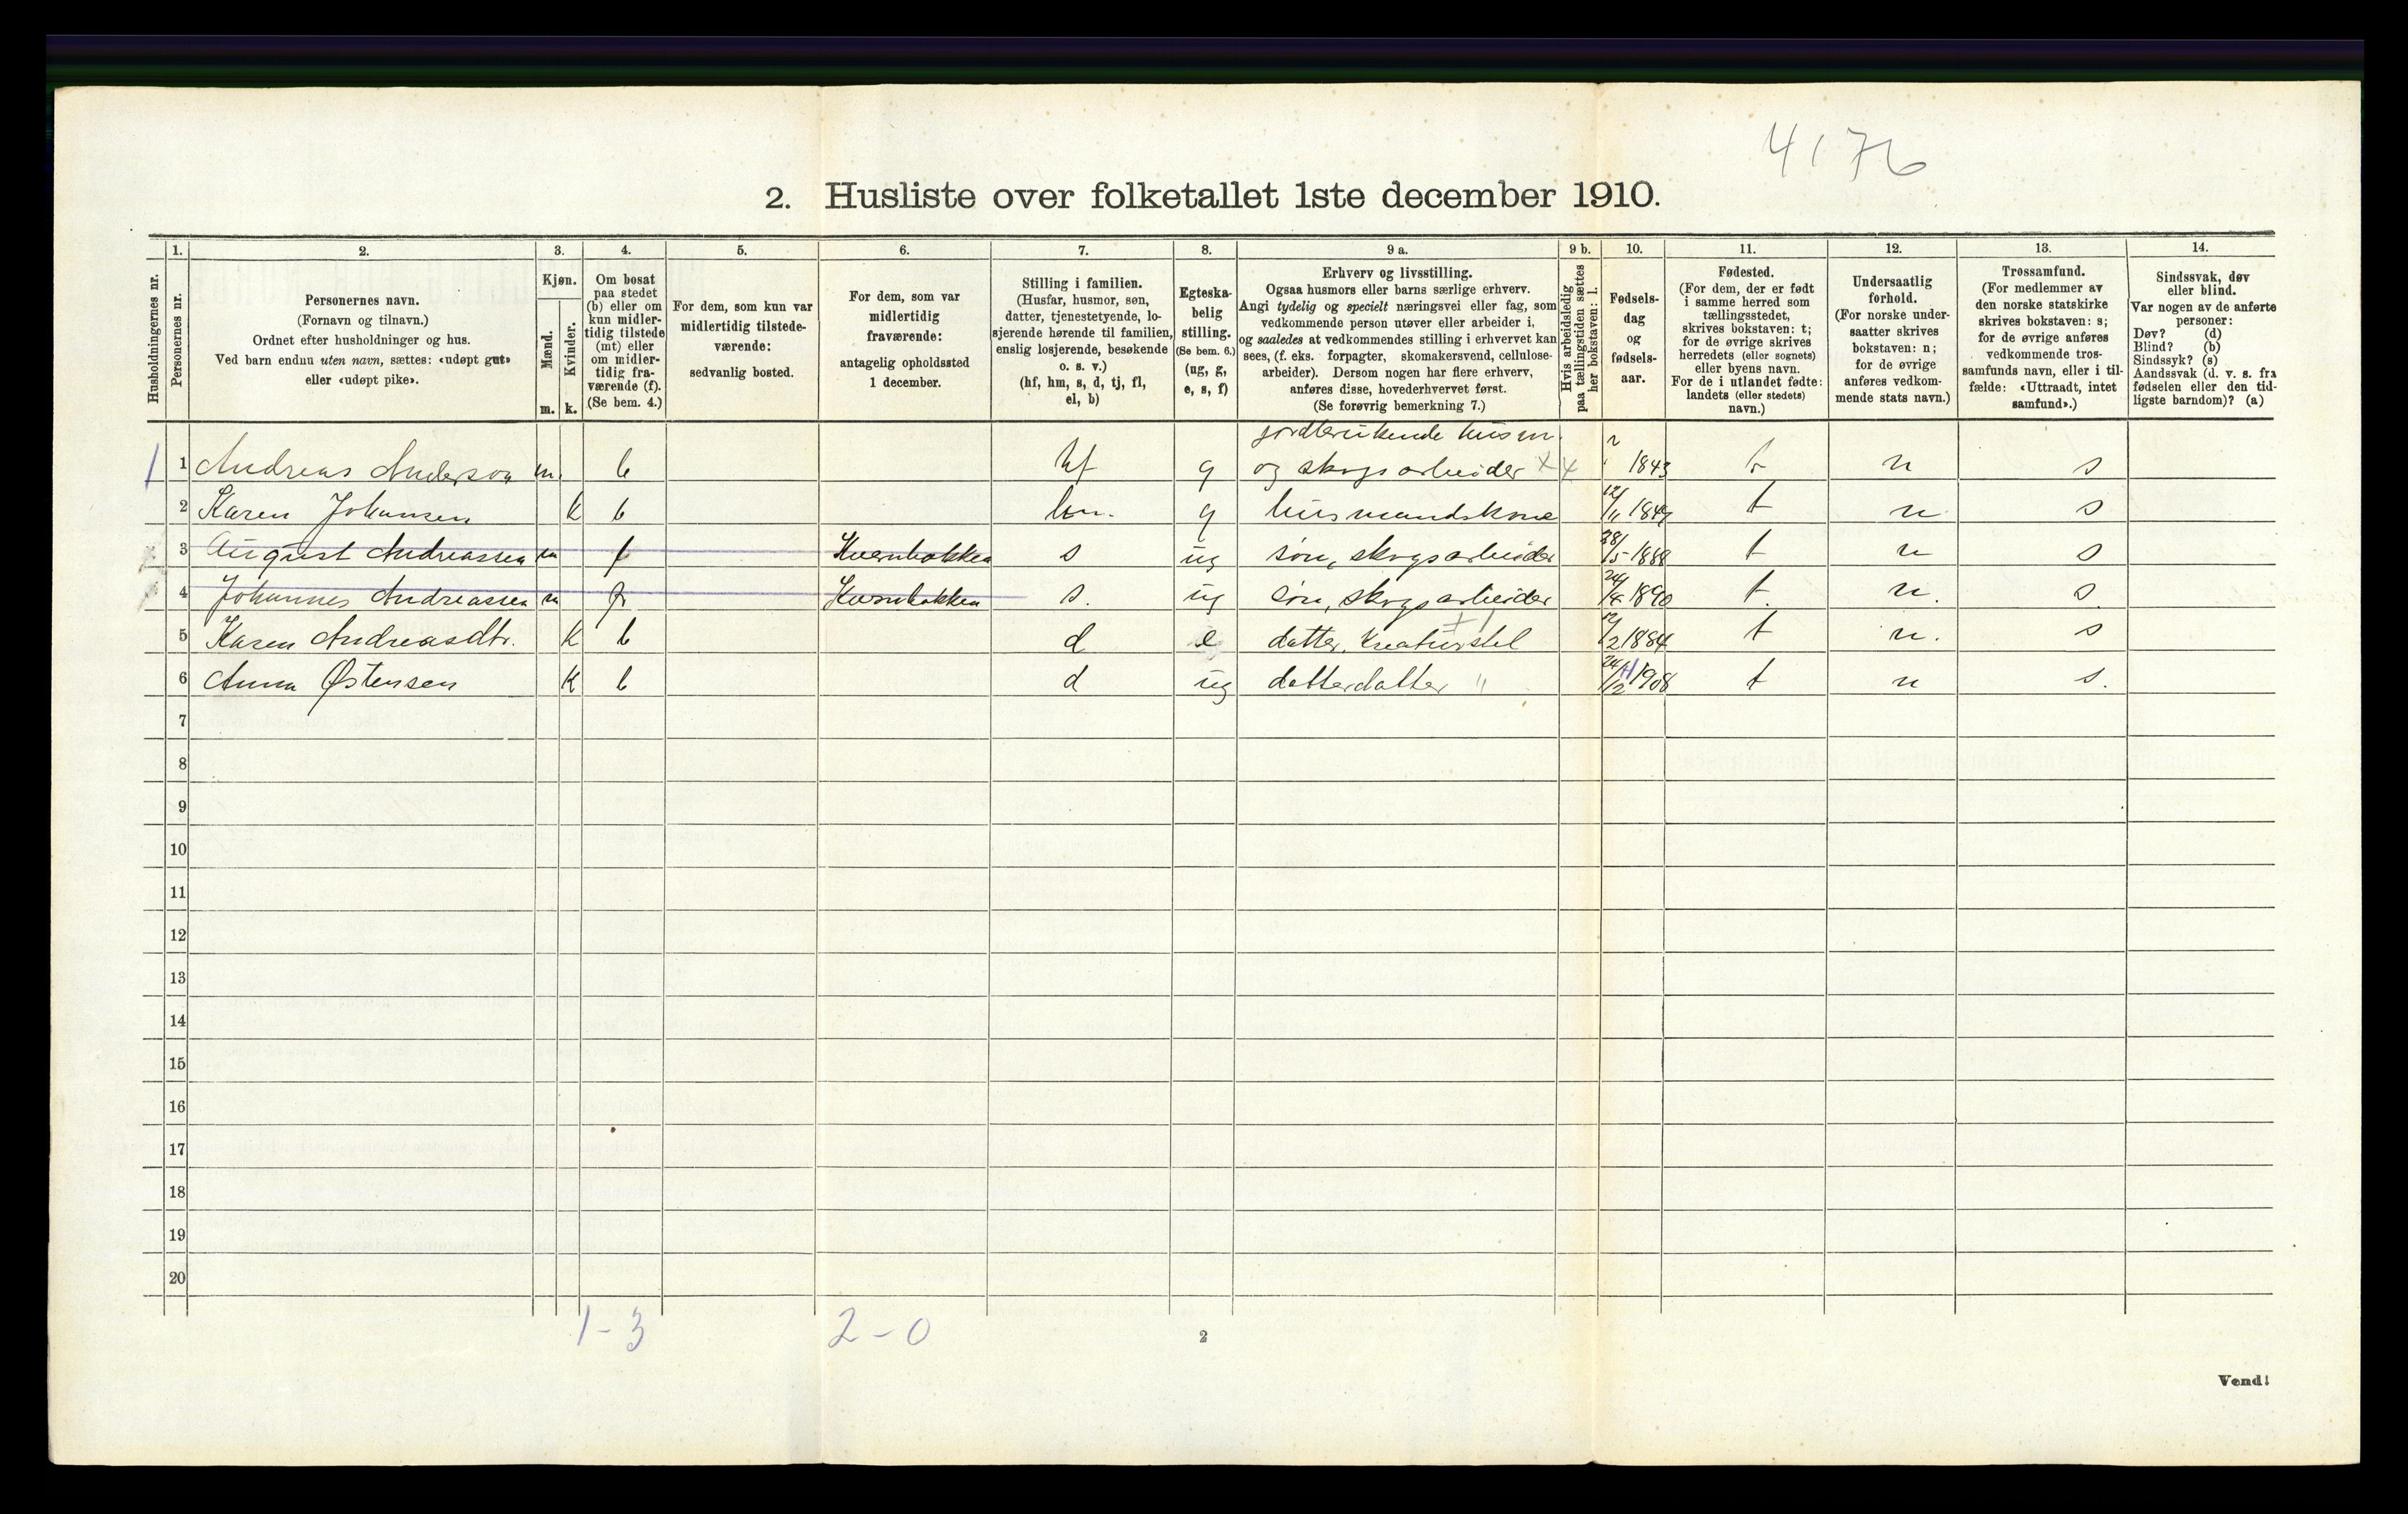 4176
2. Husliste over folketallet 1ste december 1910.
Husholdningernes nr.
1.
Personernes nr.
2.
Personernes navn.
(Fornavn og tilnavn.)
Ordnet efter husholdninger og hus.
Ved barn endnu uten navn, sættes: «udøpt gut»
eller «udøpt pike».
3.
Kjøn.
Mænd.
m.
Kvinder.
k.
4.
Om bosat
paa stedet
(b) eller om
kun midler-
tidig tilstede
(mt) eller
om midler-
tidig fra-
værende (f).
(Se bem. 4.)
5.
For dem, som kun var
midlertidig tilstede-
værende:
sedvanlig bosted.
6.
For dem, som var
midlertidig
fraværende:
antagelig opholdssted
1 december.
7.
Stilling i familien.
(Husfar, husmor, søn,
datter, tjenestetyende, lo-
sjerende hørende til familien,
enslig losjerende, besøkende
o. s. v.)
(hf, hm, s, d, tj, fl,
el, b)
8.
Egteska-
belig
stilling.
(Se bem. 6.)
(ug, g,
e, s, f)
9 a.
Erhverv og livsstilling.
Ogsaa husmors eller barns særlige erhverv.
Angi tydelig og specielt næringsvei eller fag, som
vedkommende person utøver eller arbeider i,
og saaledes at vedkommendes stilling i erhvervet kan
sees, (f. eks. forpagter, skomakersvend, cellulose-
arbeider). Dersom nogen har flere erhverv,
anføres disse, hovederhvervet først.
(Se forøvrig bemerkning 7.)
9 b.
Hvis arbeidsledig
paa tællingstiden sættes
her bokstaven: l.
10.
Fødsels-
dag
og
fødsels-
aar.
11.
Fødested.
(For dem, der er født
i samme herred som
tællingsstedet,
skrives bokstaven: t;
for de øvrige skrives
herredets (eller sognets)
eller byens navn.
For de i utlandet fødte:
landets (eller stedets)
navn.)
12.
Undersaatlig
forhold.
(For norske under-
saatter skrives
bokstaven: n;
for de øvrige
anføres vedkom-
mende stats navn.)
13.
Trossamfund.
(For medlemmer av
den norske statskirke
skrives bokstaven: s;
for de øvrige anføres
vedkommende tros-
samfunds navn, eller i til-
fælde: «Uttraadt, intet
samfund».)
14.
Sindssvak, døv
eller blind.
Var nogen av de anførte
personer:
Døv? (d)
Blind? (b)
Sindssyk? (s)
Aandssvak (d. v. s. fra
fødselen eller den tid-
ligste barndom)? (a)
jordbrukende husm.
1 1 Andreas Anderson m. b hf g og skogsarbeider 1843 t n s
2 Karen Johansen k b hm. g husmandskone 12/11 1849 t n s
3 August Andreassen m f Kvernbakken s ug søn, skogsarbeider 28/5 1888 t n s
4 Johannes Andreassen m f Kvernbakken s. ug søn, skogsarbeider 24/4 1890 t. n. s.
5 Karen Andreasdtr. k b d e datter, kreaturstel 12/2 1884 t n. s
6 Anna Østensen k b d ug datterdatter " 24/12 1908 t n s.
7
8
9
10
11
12
13
14
15
16
17
18
19
20
1-3 2-0
2
Vend!